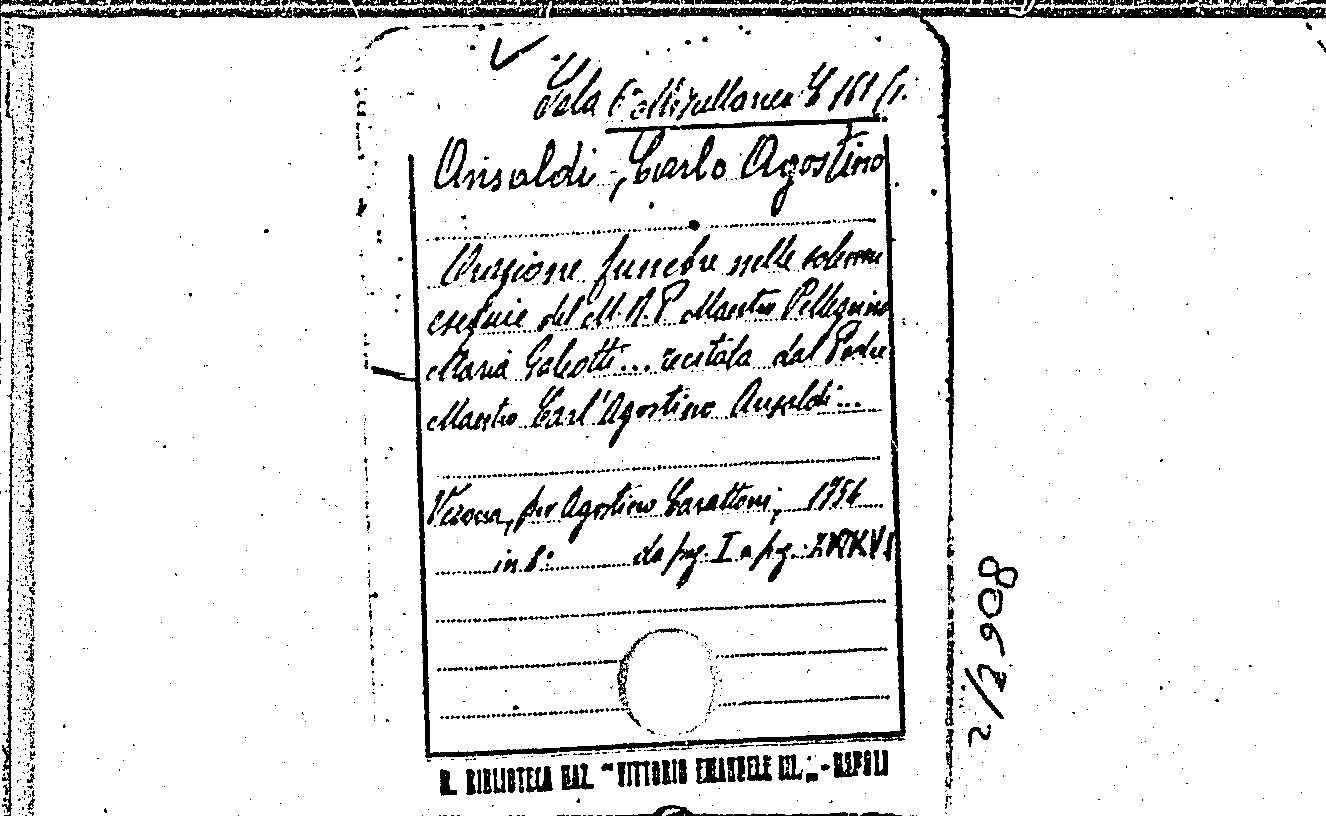 Sala 6a Miscellanea
Ansaldi, Carlo Agostino
Orazione funebre nelle solenni
esequie del M. R. P. Maestro Pellegrino
Maria Galeotti... recitata dal Padre
Maestro Carl'Agostino Ansaldi...
Verona, per Agostino Carattoni, 1756
in 8° da pag. I a pag.
R. BIBLIOTECA NAZ. "VITTORIO EMANUELE III." - NAPOLI